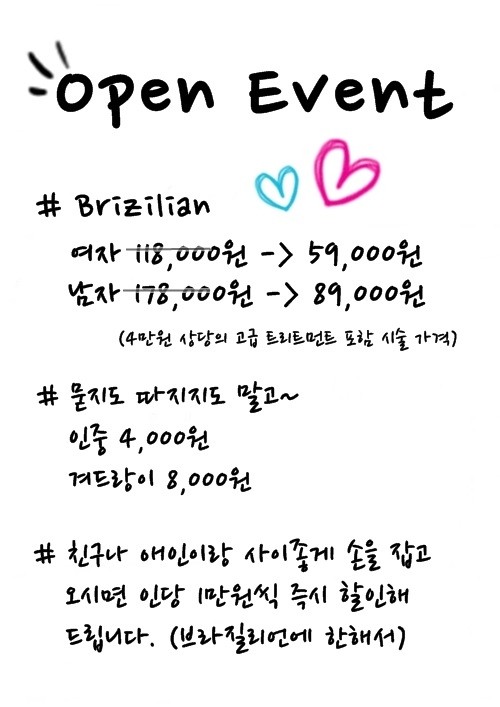 Open Event
# Brizilian
여자 118,000원 -> 59,000원
남자 178,000원 -> 89,000원
(4만원 상당의 고급 트리트먼트 포함 시술 가격)
# 묻지도 따지지도 말고~
인중 4,000원
겨드랑이 8,000원
# 친구나 애인이랑 사이좋게 손을 잡고
오시면 인당 1만원씩 즉시 할인해
드립니다. (브라질리언에 한해서)